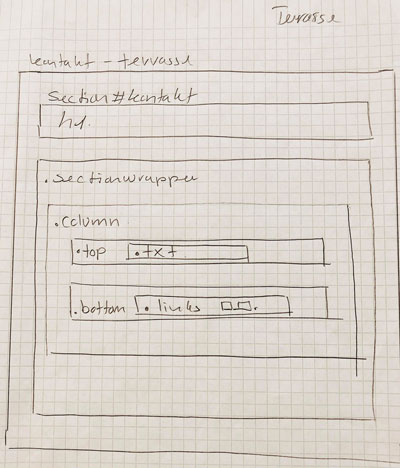 Terrasse
kontakt - terrasse
section#kontakt
h1.
.sectionwrapper
.column
.top .txt
.bottom .links